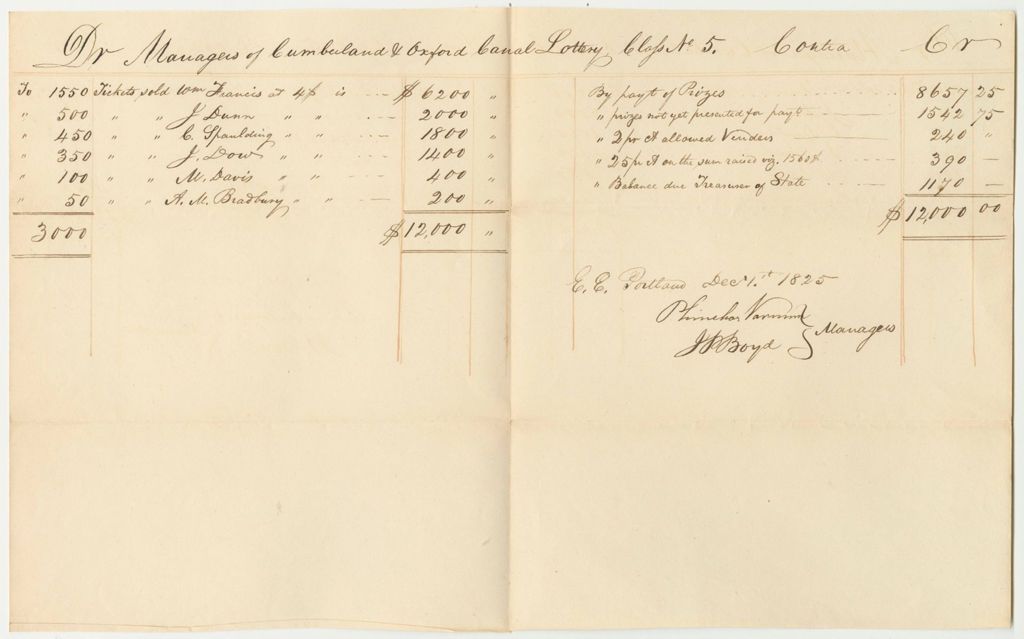 Dr Managers of Cumberland & Oxford Canal Lottery Class No 5. Contra Cr
To 1550 Tickets sold Wm Francis at 4$ is $ 6200 "
" 500 " " J. Dunn " " 2000 "
" 450 " " C. Spaulding " " 1800 "
" 350 " " J. Dow " " 1400 "
" 100 " " M. Davis " " 400 "
" 50 " " A. M. Bradbury " " 200 "
3000 $ 12,000 "
By payt of Prizes 8657 25
" prizes not yet presented for payt 1542 75
" 2 pr ct allowed Venders 240 "
" 25 pr ct on the sum raised viz. 1560$ 390 —
" Balance due Treasurer of State 1170 —
$ 12,000 00
E. E. Portland Decr 1.st 1825
Phinehas Varnum
J P Boyd } Managers